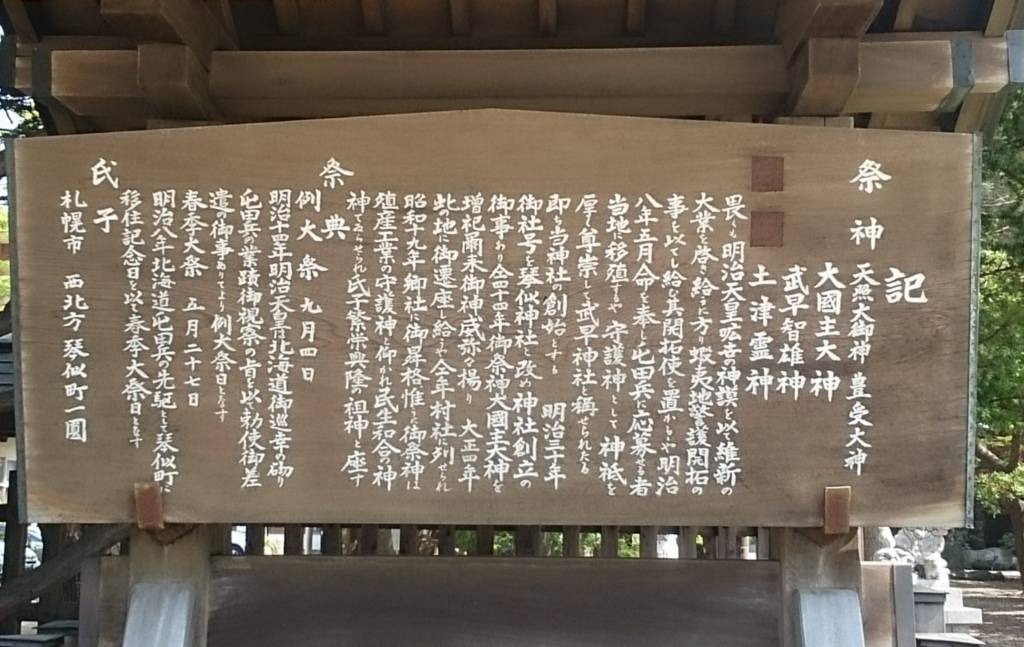 記
祭神
天照大御神 豊受大神
大國主大神
武早智雄神
土津霊神
畏くも明治天皇宏吉神謨を以て維新の
大業を啓き給ふに方り蝦夷地警護開拓の
事を以てし給ひ其開拓使を置かるゝや明治
八年五月命を奉じ屯田兵に応募せる者
当地に移殖するや守護神として神祇を
厚く尊崇して武早神社と稱せられたる
即ち当神社の創始とする 明治三十年
御社号を琴似神社と改め神社創立の
御事あり仝四十四年御祭神大國主大神を
増祀爾来御神威弥々揚り 大正四年
此の地に御遷座し給ふや仝年村社に列せられ
昭和十九年郷社に御昇格惟ふに御祭神は
殖産工業の守護神と仰がれ民生和合の神
神であらせられ氏子繁栄興隆の祖神と座す
祭典
例大祭 九月四日
明治十四年明治天皇北海道御巡幸の砌り
屯田兵の業蹟御視察の旨を以て勅使御差
遣の御事ありてより例大祭日となす
春季大祭 五月二十七日
明治八年北海道屯田兵の先駆として琴似町に
移住記念日を以て春季大祭日となす
氏子
札幌市 西北方 琴似町一圓